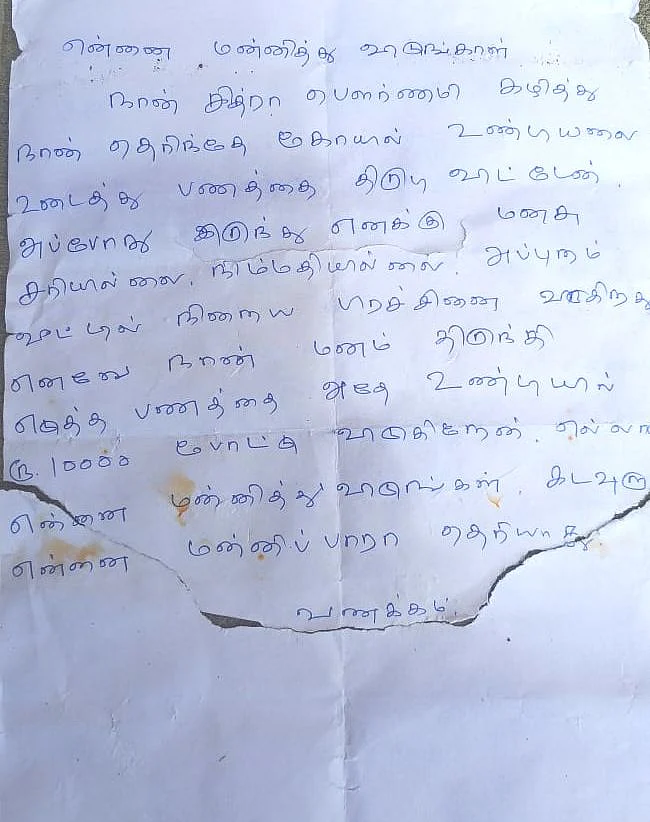 என்னை மன்னித்து விடுங்கள்
நான் சித்ரா பௌர்ணமி கழித்து
நான் தெரிந்தே கோயில் உண்டியலை
உடைத்து பணத்தை திருடி விட்டேன்.
அப்போது இருந்து எனக்கு மனசு
சரியில்லை. நிம்மதியில்லை. அப்புறம்
வீட்டில் நிறைய பிரச்சினை வருகிறது
எனவே நான் மனம் திருந்தி
எடுத்த பணத்தை அதே உண்டியில்
ரூ.10000 போட்டு விடுகிறேன். எல்லா
என்னை மன்னித்து விடுங்கள். கடவுளு
என்னை மன்னிப்பாரா தெரியாது
வணக்கம்.